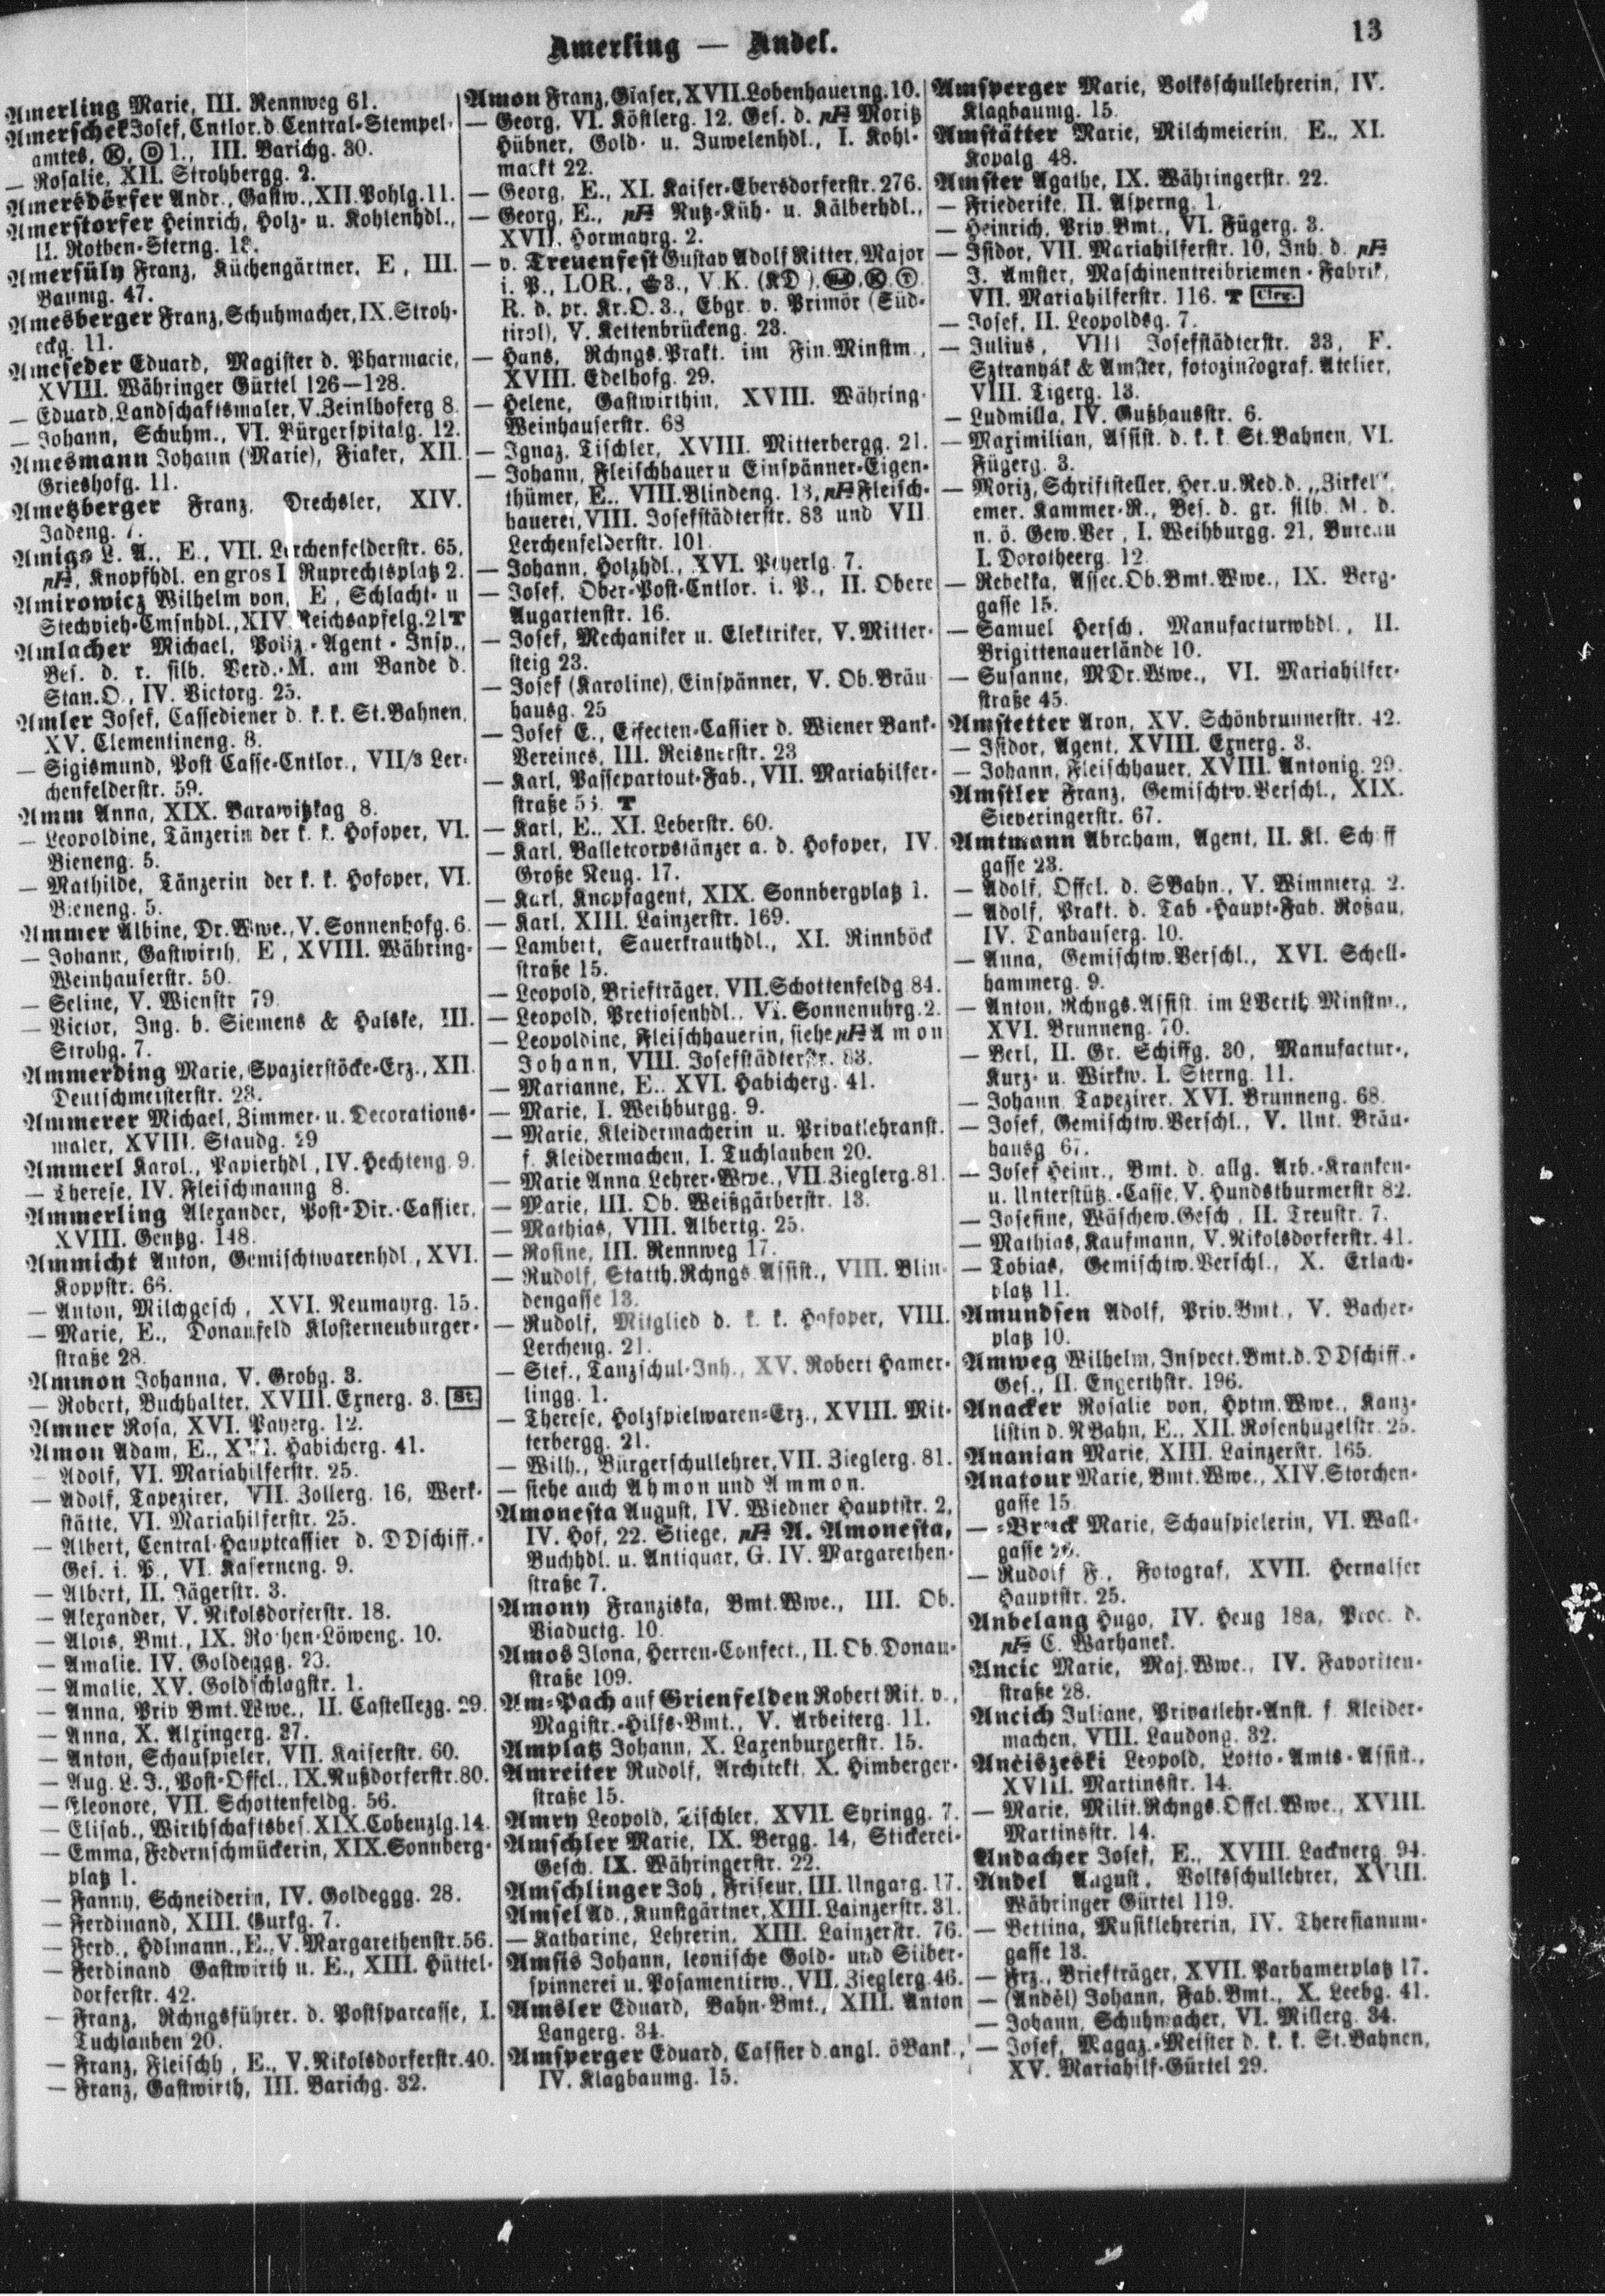 Amerling — Andel.
13
Amerling Marie, III. Rennweg 61.
Amerschek Josef, Cntlor. d. Central-Stempel-
amtes, Ⓚ, Ⓓ 1., III. Barichg. 30.
— Rosalie, XII. Strohbergg. 2.
Amersdorfer Andr., Gastw., XII. Pohlg. 11.
Amerstorfer Heinrich, Holz- u. Kohlenhdl.,
II. Rothen-Sterng.
Amersüly Franz, Küchengärtner, E, III.
Baumg. 47.
Amesberger Franz, Schuhmacher, IX. Stroh-
eckg. 11.
Ameseder Eduard, Magister d. Pharmacie,
XVIII. Währinger Gürtel 126—128.
— Eduard, Landschaftsmaler, V. Zeinlhoferg 8.
— Johann, Schuhm., VI. Bürgerspitalg. 12.
Amesmann Johann (Marie), Fiaker, XII.
Grieshofg. 11.
Ametzberger Franz, Drechsler, XIV.
Jadeng. 7.
Amigo L. A., E., VII. Lerchenfelderstr. 65,
pF, Knopfhdl. en gros I Ruprechtsplatz 2.
Amirowicz Wilhelm von, E, Schlacht- u
Stechvieh-Cmsnhdl., XIV. Reichsapfelg. 21 T
Amlacher Michael, Poliz.-Agent-Insp.,
Bes. d. r. silb. Verd.-M. am Bande d.
Stan.O., IV. Victorg. 25.
Amler Josef, Cassediener d. k. k. St.Bahnen,
XV. Clementineng. 8.
— Sigismund, Post Casse-Cntlor., VII/3 Ler-
chenfelderstr. 59.
Amm Anna, XIX. Barawitzkag 8.
— Leopoldine, Tänzerin der k. k. Hofoper, VI.
Bieneng. 5.
— Mathilde, Tänzerin der k. k. Hofoper, VI.
Bieneng. 5.
Ammer Albine, Dr.Wwe., V. Sonnenhofg. 6.
— Johann, Gastwirth, E, XVIII. Währing-
Weinhauserstr. 50.
— Seline, V. Wienstr 79.
— Victor, Ing. b. Siemens & Halske, III.
Strohg. 7.
Ammerding Marie, Spazierstöcke-Erz., XII.
Deutschmeisterstr. 23.
Ammerer Michael, Zimmer- u. Decorations-
maler, XVIII. Staudg. 29
Ammerl Karol., Papierhdl, IV. Hechteng. 9.
— Therese, IV. Fleischmanng 8.
Ammerling Alexander, Post-Dir.-Cassier,
XVIII. Gentzg. 148.
Ammicht Anton, Gemischtwarenhdl., XVI.
Koppstr. 66.
— Anton, Milchgesch, XVI. Neumayrg. 15.
— Marie, E., Donaufeld Klosterneuburger-
straße 28.
Ammon Johanna, V. Grohg. 3.
— Robert, Buchhalter, XVIII. Exnerg. 3. St.
Amner Rosa, XVI. Payerg. 12.
Amon Adam, E., XVI. Habicherg. 41.
— Adolf, VI. Mariahilferstr. 25.
— Adolf, Tapezirer, VII. Zollerg. 16, Werk-
stätte, VI. Mariahilferstr. 25.
— Albert, Central-Hauptcassier d. DDschiff.-
Ges. i. P., VI. Kaserneng. 9.
— Albert, II. Jägerstr. 3.
— Alexander, V. Nikolsdorferstr. 18.
— Alois, Bmt., IX. Rothen-Löweng. 10.
— Amalie, IV. Goldeggg. 23.
— Amalie, XV. Goldschlagstr. 1.
— Anna, Priv Bmt.Wwe., II. Castellezg. 29.
— Anna, X. Alxingerg. 37.
— Anton, Schauspieler, VII. Kaiserstr. 60.
— Aug. L. J., Post-Offcl., IX. Nußdorferstr. 80.
— Eleonore, VII. Schottenfeldg. 56.
— Elisab., Wirthschaftsbes. XIX. Cobenzlg. 14.
— Emma, Federnschmückerin, XIX. Sonnberg-
platz 1.
— Fanny, Schneiderin, IV. Goldeggg. 28.
— Ferdinand, XIII. Gurkg. 7.
— Ferd., Hdlmann., E., V. Margarethenstr. 56.
— Ferdinand Gastwirth u. E., XIII. Hüttel-
dorferstr. 42.
— Franz, Rchngsführer. d. Postsparcasse, I.
Tuchlauben 20.
— Franz, Fleischh, E., V. Nikolsdorferstr. 40.
— Franz, Gastwirth, III. Barichg. 32.
Amon Franz, Glaser, XVII. Lobenhauerng. 10.
— Georg, VI. Köstlerg. 12. Ges. d. pF Moritz
Hübner, Gold- u. Juwelenhdl., I. Kohl-
markt 22.
— Georg, E., XI. Kaiser-Ebersdorferstr. 276.
— Georg, E., pF Nutz-Küh- u. Kälberhdl.,
XVII. Hormayrg. 2.
— v. Treuenfest Gustav Adolf Ritter, Major
i. P., LOR., 3., V.K. (KD), Ⓚ Ⓣ
R. d. pr. Kr.O. 3., Ebgr. v. Primör (Süd-
tirol), V. Kettenbrückeng. 23.
— Hans, Rchngs.Prakt. im Fin.Minstm.,
XVIII. Edelhofg. 29.
— Helene, Gastwirthin, XVIII. Währing-
Weinhauserstr. 68
— Ignaz, Tischler, XVIII. Mitterbergg. 21.
— Johann, Fleischhauer u Einspänner-Eigen-
thümer, E., VIII. Blindeng. 13, pF Fleisch-
hauerei, VIII. Josefstädterstr. 83 und VII.
Lerchenfelderstr. 101.
— Johann, Holzhdl., XVI. Payerlg. 7.
— Josef, Ober-Post-Cntlor. i. P., II. Obere
Augartenstr. 16.
— Josef, Mechaniker u. Elektriker, V. Mitter-
steig 23.
— Josef (Karoline), Einspänner, V. Ob. Bräu
hausg. 25
— Josef E., Effecten-Cassier d. Wiener Bank-
Vereines, III. Reisnerstr. 23
— Karl, Passepartout-Fab., VII. Mariahilfer-
straße T
— Karl, E., XI. Leberstr. 60.
— Karl, Balletcorpstänzer a. d. Hofoper, IV.
Große Neug. 17.
— Karl, Knopfagent, XIX. Sonnbergplatz 1.
— Karl, XIII. Lainzerstr. 169.
— Lambert, Sauerkrauthdl., XI. Rinnböck
straße 15.
— Leopold, Briefträger, VII. Schottenfeldg 84.
— Leopold, Pretiosenhdl., VI. Sonnenuhrg. 2.
— Leopoldine, Fleischhauerin, siehe pF Amon
Johann, VIII. Josefstädterstr. 83.
— Marianne, E.. XVI. Habicherg. 41.
— Marie, I. Weihburgg. 9.
— Marie, Kleidermacherin u. Privatlehranst.
f. Kleidermachen, I. Tuchlauben 20.
— Marie Anna Lehrer-Wwe., VII. Zieglerg. 81.
— Marie, III. Ob. Weißgärberstr. 13.
— Mathias, VIII. Albertg. 25.
— Rosine, III. Rennweg 17.
— Rudolf, Statth.Rchngs Assist., VIII. Blin-
dengasse 13.
— Rudolf, Mitglied d. k. k. Hofoper, VIII.
Lercheng. 21.
— Stef., Tanzschul-Inh., XV. Robert Hamer-
lingg. 1.
— Therese, Holzspielwaren-Erz., XVIII. Mit-
terbergg. 21.
— Wilh., Bürgerschullehrer, VII. Zieglerg. 81.
— siehe auch Ahmon und Ammon.
Amonesta August, IV. Wiedner Hauptstr. 2,
IV. Hof, 22. Stiege, pF A. Amonesta,
Buchhdl. u. Antiquar, G. IV. Margarethen-
straße 7.
Amony Franziska, Bmt.Wwe., III. Ob.
Viaductg. 10.
Amos Ilona, Herren-Confect., II. Ob. Donau-
straße 109.
Am-Pach auf Grienfelden Robert Rit. v.,
Magistr.-Hilfs-Bmt., V. Arbeiterg. 11.
Amplatz Johann, X. Laxenburgerstr. 15.
Amreiter Rudolf, Architekt, X. Himberger-
straße 15.
Amry Leopold, Tischler, XVII. Syringg. 7.
Amschler Marie, IX. Bergg. 14, Stickerei-
Gesch. IX. Währingerstr. 22.
Amschlinger Joh, Friseur, III. Ungarg. 17.
Amsel Ad., Kunstgärtner, XIII. Lainzerstr. 31.
— Katharine, Lehrerin, XIII. Lainzerstr. 76.
Amsis Johann, leonische Gold- und Silber-
spinnerei u. Posamentirw., VII. Zieglerg. 46.
Amsler Eduard, Bahn-Bmt., XIII. Anton
Langerg. 34.
Amsperger Eduard, Cassier d. angl. öBank.,
IV. Klagbaumg. 15.
Amsperger Marie, Volksschullehrerin, IV.
Klagbaumg. 15.
Amstätter Marie, Milchmeierin, E., XI.
Kopalg. 48.
Amster Agathe, IX. Währingerstr. 22.
— Friederike, II. Asperng. 1.
— Heinrich, Priv.Bmt., VI. Fügerg. 3.
— Isidor, VII. Mariahilferstr. 10, Inh. d. pF
J. Amster, Maschinentreibriemen-Fabrik,
VII. Mariahilferstr. 116. T Clrg.
— Josef, II. Leopoldsg. 7.
— Julius, VIII Josefstädterstr. 33, F.
Sztranyák & Amster, fotozincograf. Atelier,
VIII. Tigerg. 13.
— Ludmilla, IV. Gußhausstr. 6.
— Maximilian, Assist. d. k. k. St.Bahnen, VI.
Fügerg. 3.
— Moriz, Schriftsteller, Her. u. Red. d. „Zirkel",
emer. Kammer-R., Bes. d. gr. silb. M. d.
n. ö. Gew.Ver, I. Weihburgg. 21, Bureau
I. Dorotheerg. 12.
— Rebekka, Assec.Ob.Bmt.Wwe., IX. Berg-
gasse 15.
— Samuel Hersch, Manufacturwhdl., II.
Brigittenauerlände 10.
— Susanne, MDr.Wwe., VI. Mariahilfer-
straße 45.
Amstetter Aron, XV. Schönbrunnerstr. 42.
— Isidor, Agent, XVIII. Exnerg. 3.
— Johann, Fleischhauer, XVIII. Antonig. 29.
Amstler Franz, Gemischtw.Verschl., XIX.
Sieveringerstr. 67.
Amtmann Abraham, Agent, II. Kl. Schiff
gasse 23.
— Adolf, Offcl. d. SBahn., V. Wimmerg. 2.
— Adolf, Prakt. d. Tab-Haupt-Fab. Roßau,
IV. Danhauserg. 10.
— Anna, Gemischtw.Verschl., XVI. Schell-
hammerg. 9.
— Anton, Rchngs.Assist. im LVerth.Minstm.,
XVI. Brunneng. 70.
— Berl, II. Gr. Schiffg. 30, Manufactur-,
Kurz- u. Wirkw. I. Sterng. 11.
— Johann Tapezirer, XVI. Brunneng. 68.
— Josef, Gemischtw.Verschl., V. Unt. Bräu-
hausg 67.
— Josef Heinr., Bmt. d. allg. Arb.-Kranken-
u. Unterstütz.-Casse, V. Hundsthurmerstr 82.
— Josefine, Wäschew.Gesch, II. Treustr. 7.
— Mathias, Kaufmann, V. Nikolsdorferstr. 41.
— Tobias, Gemischtw.Verschl., X. Erlach-
platz 11.
Amundsen Adolf, Priv.Bmt., V. Bacher-
platz 10.
Amweg Wilhelm, Inspect.Bmt. d. DDschiff.-
Ges., II. Engerthstr. 196.
Anacker Rosalie von, Hptm.Wwe., Kanz-
listin d. NBahn, E., XII. Rosenhügelstr. 25.
Ananian Marie, XIII. Lainzerstr. 165.
Anatour Marie, Bmt.Wwe., XIV. Storchen-
gasse 15.
— -Bruck Marie, Schauspielerin, VI. Wall-
gasse
— Rudolf F., Fotograf, XVII. Hernalser
Hauptstr. 25.
Anbelang Hugo, IV. Heug 18a, Proc. d.
pF C. Warhanek.
Ancic Marie, Maj.Wwe., IV. Favoriten-
straße 28.
Ancich Juliane, Privatlehr-Anst. f. Kleider-
machen, VIII. Laudong. 32.
Anciszeski Leopold, Lotto-Amts-Assist.,
XVIII. Martinsstr. 14.
— Marie, Milit.Rchngs.Offcl.Wwe., XVIII.
Martinsstr. 14.
Andacher Josef, E., XVIII. Lacknerg. 94.
Andel August, Volksschullehrer, XVIII.
Währinger Gürtel 119.
— Bettina, Musiklehrerin, IV. Theresianum-
gasse 13.
— Frz., Briefträger, XVII. Parhamerplatz 17.
— (Anděl) Johann, Fab.Bmt., X. Leebg. 41.
— Johann, Schuhmacher, VI. Millerg. 34.
— Josef, Magaz.-Meister d. k. k. St.Bahnen,
XV. Mariahilf-Gürtel 29.